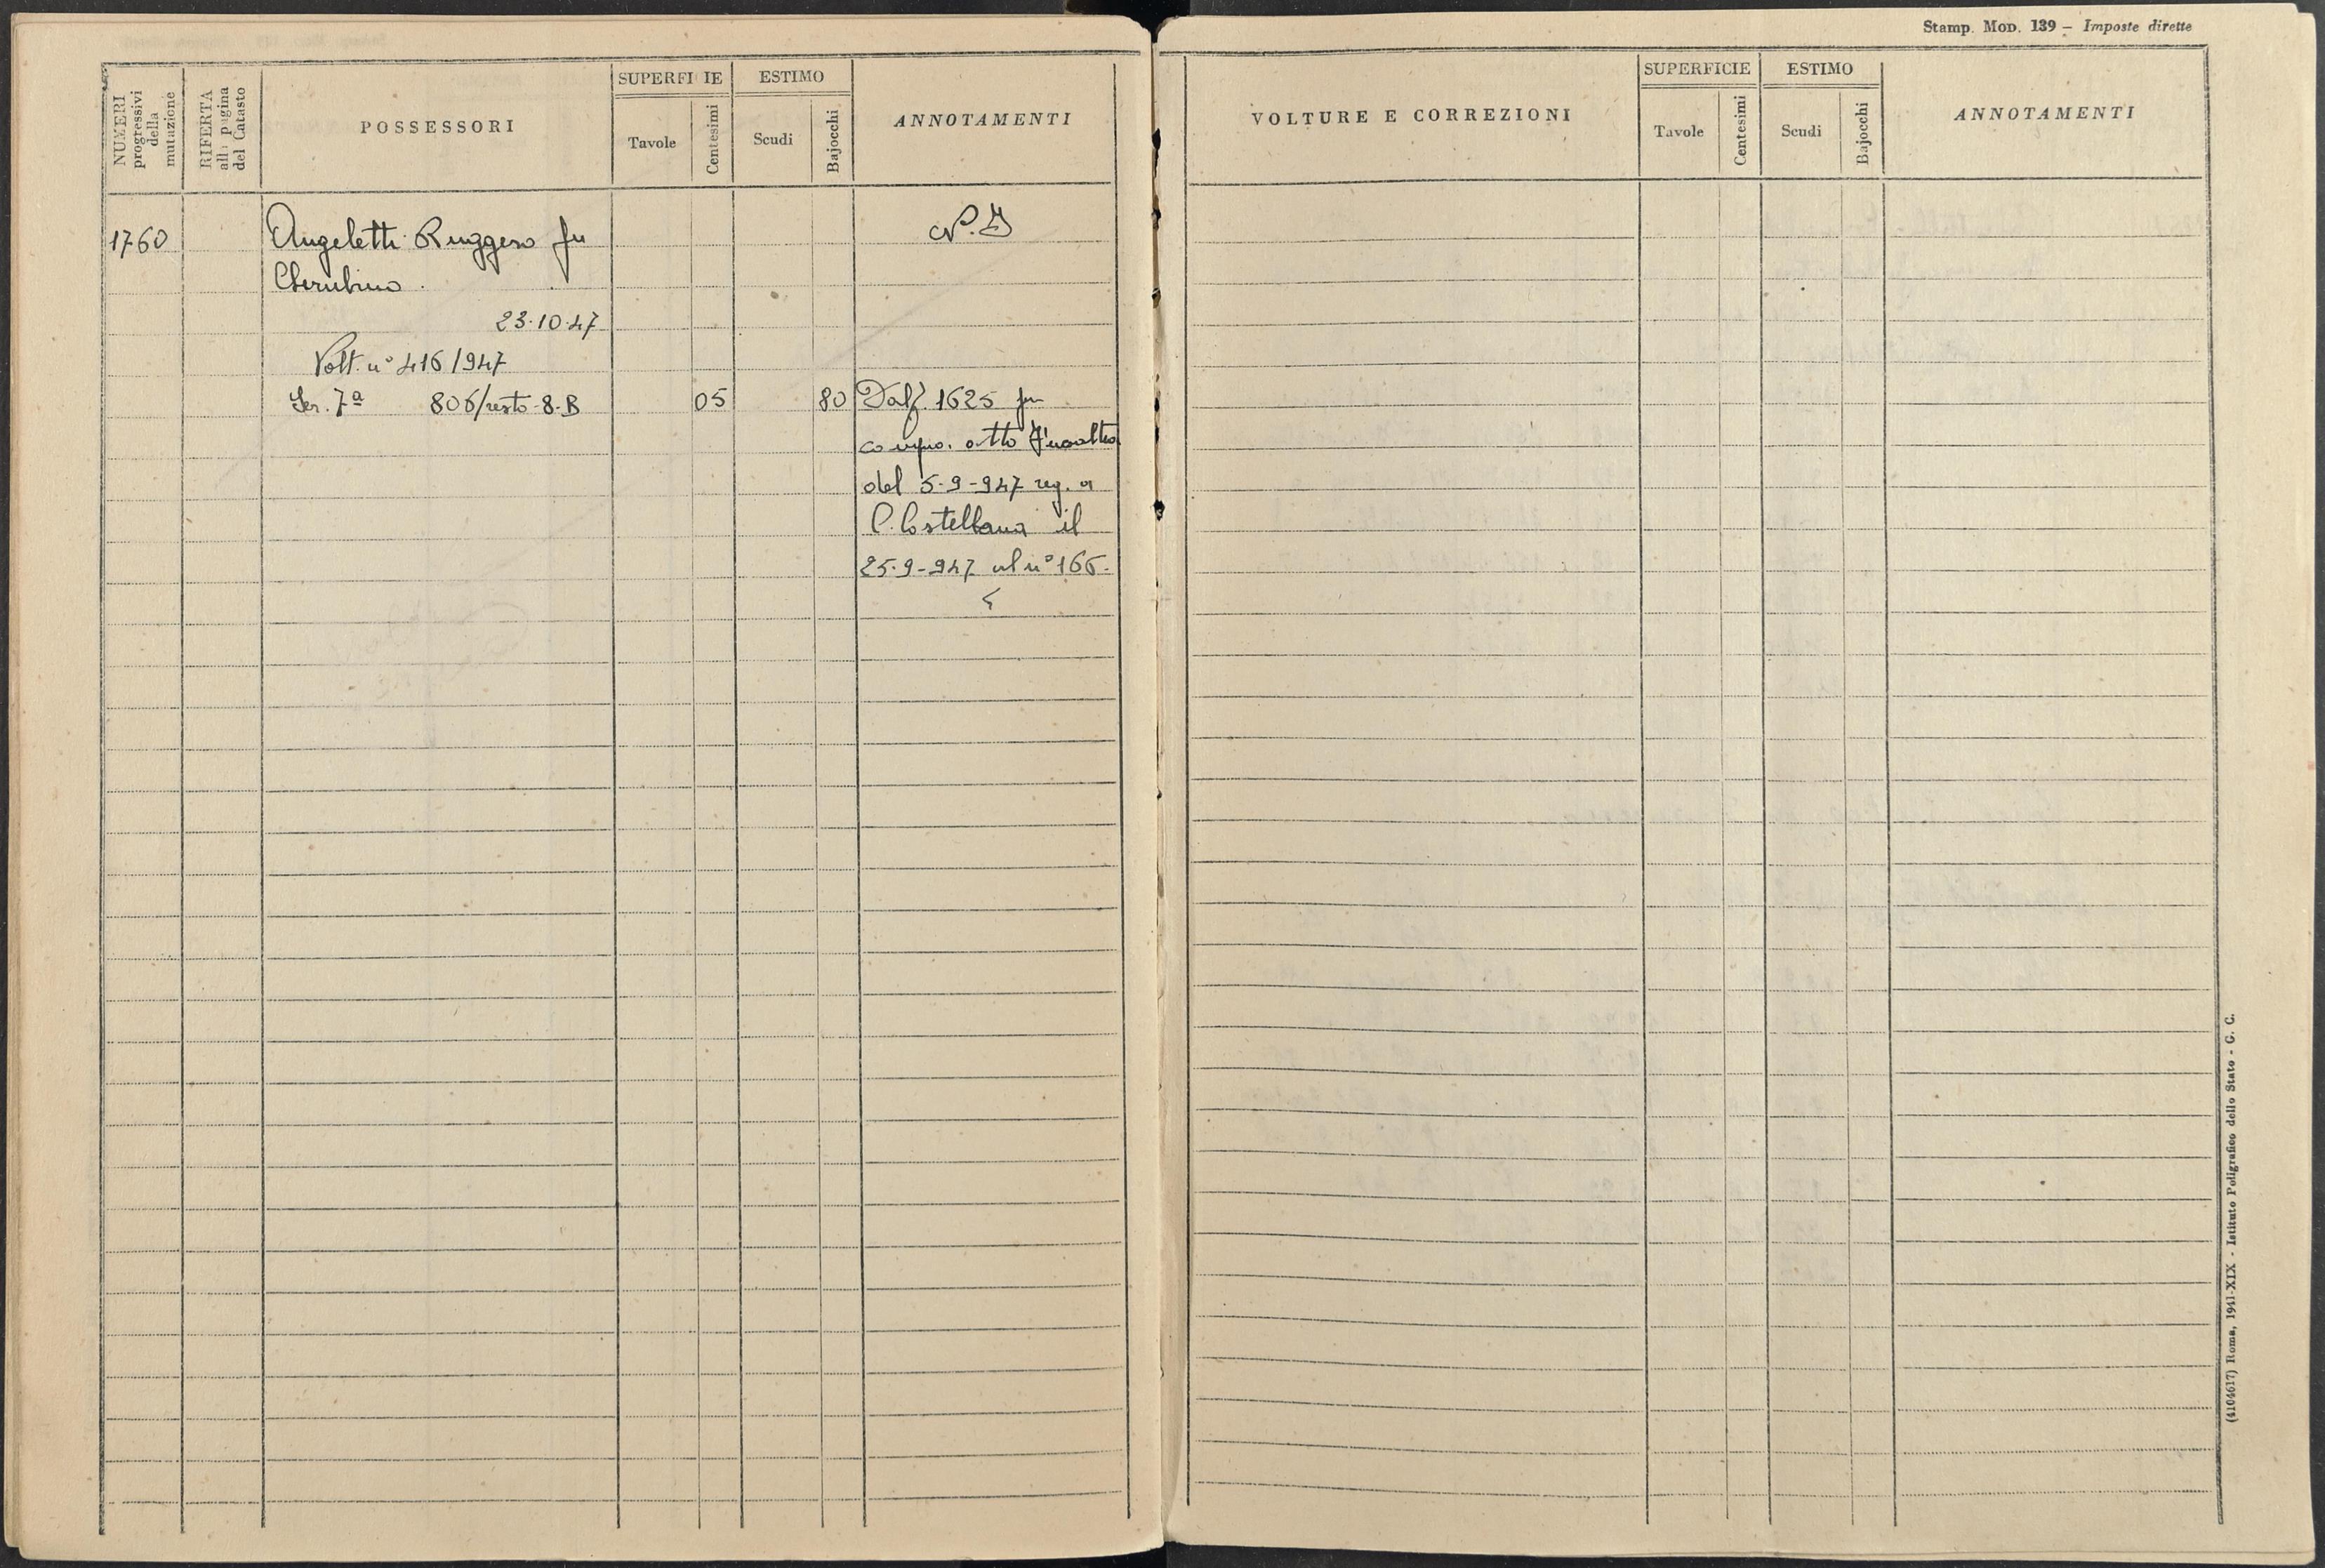 Stamp. Mod. 139 – Imposte dirette
NUMERI progressivi della mutazione
RIFERTA alla pagina del Catasto
POSSESSORI
SUPERFI IE
Tavole
Centesimi
ESTIMO
Scudi
Bajocchi
ANNOTAMENTI
VOLTURE E CORREZIONI
SUPERFICIE
Tavole
Centesimi
ESTIMO
Scudi
Bajocchi
ANNOTAMENTI
1760 Angeletti Ruggero fu
Cherubino.
23.10.47
Volt. n° 416/947
Ser. 7ª 806/resto-8-B 05 80
Dal 1625 per
compr. atto
del 5-9-947 reg. a
C. Castellana il
25-9-947 al n° 166.
(4104617) Roma, 1941-XIX - Istituto Poligrafico dello Stato - G. C.